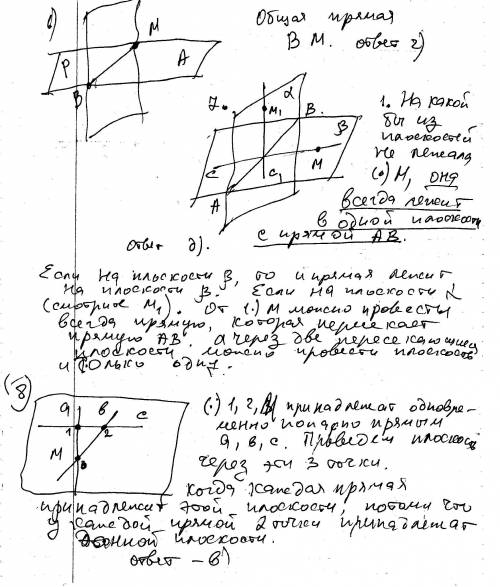 б)
M
Общая прямая
P
A
В М. ответ г)
B
7.
M₁
α
B
β
C
M
A
C₁
1. На какой
бы из
плоскостей
не лежала
(•) М, она
всегда лежит
в одной плоскости
с прямой АВ.
ответ д).
Если на плоскости β, то и прямая лежит
на плоскости β. Если на плоскости α
(смотрите М₁). От (•) М можно провести
всегда прямую, которая пересекает
прямую АВ. а через две пересекающиеся
плоскости можно провести плоскость
и только одну.
8)
a
в
c
1
2
M
3
(•) 1, 2, М принадлежат одновре-
менно попарно прямым
а, в, с. Проведем плоскость
через эти 3 точки.
когда каждая прямая
принадлежит этой плоскости, потому что
у каждой прямой 2 точки принадлежат
данной плоскости.
ответ - в)